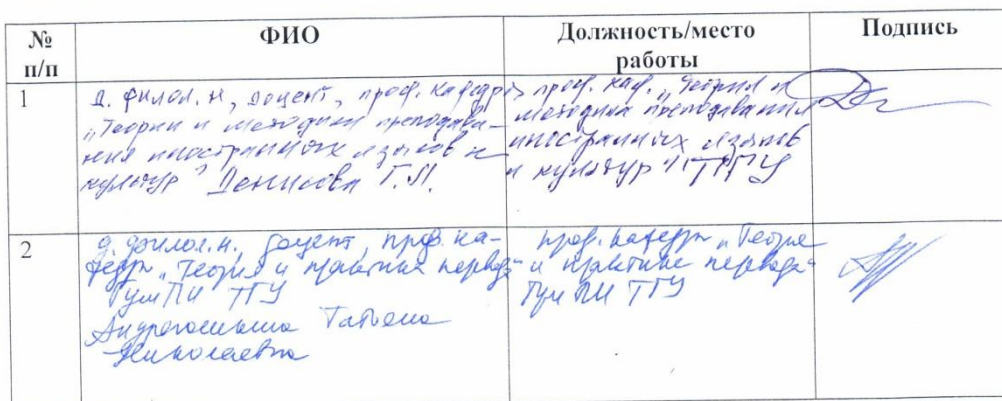 № п/п
ФИО
Должность/место работы
Подпись
1
д. филол. н, доцент, проф. кафедры
„Теории и методики преподава-
ния иностранных языков и
культур" Денисова Г.Л.
проф. каф. „Теория и
методика преподавания
иностранных языков
и культур" ТГУ
2
д. филол. н. доцент, проф. ка-
федры „Теория и практика перевода"
ГумПИ ТГУ
Татьяна
Николаевна
проф. кафедры „Теория
и практика перевода"
ГумПИ ТГУ